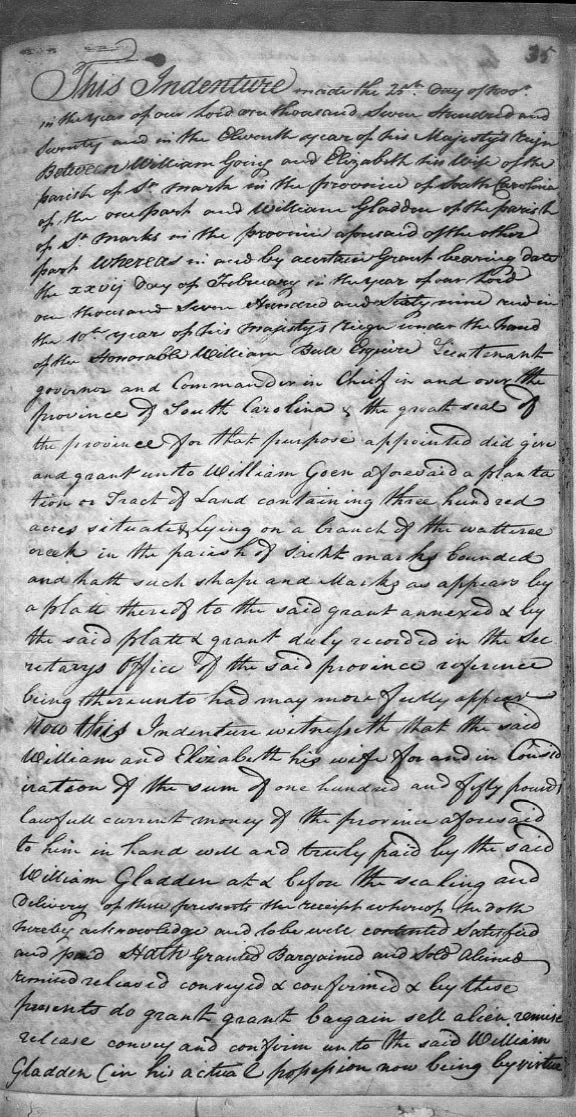 35
This Indenture made the 25th Day of Novr.
in the year of our Lord one thousand Seven Hundred and
Seventy and in the Eleventh year of his Majestys Reign
Between William Going and Elizabeth his Wife of the
parish of St mark in the province of South Carolina
of the one part and William Gladden of the parish
of St Marks in the province aforesaid of the other
part Whereas in and by a certain Grant bearing date
the xxvij Day of February in the year of our Lord
one thousand Seven Hundred and Sixty nine and in
the 10th year of his majestys Reign under the hand
of the Honorable William Bull Esquire Lieutenant
governor and Commander in Chief in and over the
province of South Carolina & the great seal of
the province for that purpose appointed did give
and grant unto William Goen aforesaid a planta
tion or Tract of Land containing three hundred
acres situate & lying on a branch of the watteree
creek in the parish of saint marks bounded
and hath such shape and Marks as appears by
a platt thereof to the said grant annexed & by
the said platt & grant duly recorded in the Sec
retarys Office of the said province reference
being thereunto had may more fully appear
Now this Indenture witnesseth that the said
William and Elizabeth his wife for and in Consid
eration of the sum of one hundred and fifty pounds
lawfull current money of the province aforesaid
to him in hand well and truly paid by the said
William Gladden at & before the sealing and
Delivery of these presents the receipt whereof he doth
hereby acknowledge and to be well contented Satisfied
and paid Hath Granted Bargained and Sold aliened
remised released conveyed & confirmed & by these
presents do grant grant bargain sell alien remise
release convey and confirm unto the said William
Gladden (in his actual possession now being by virtue